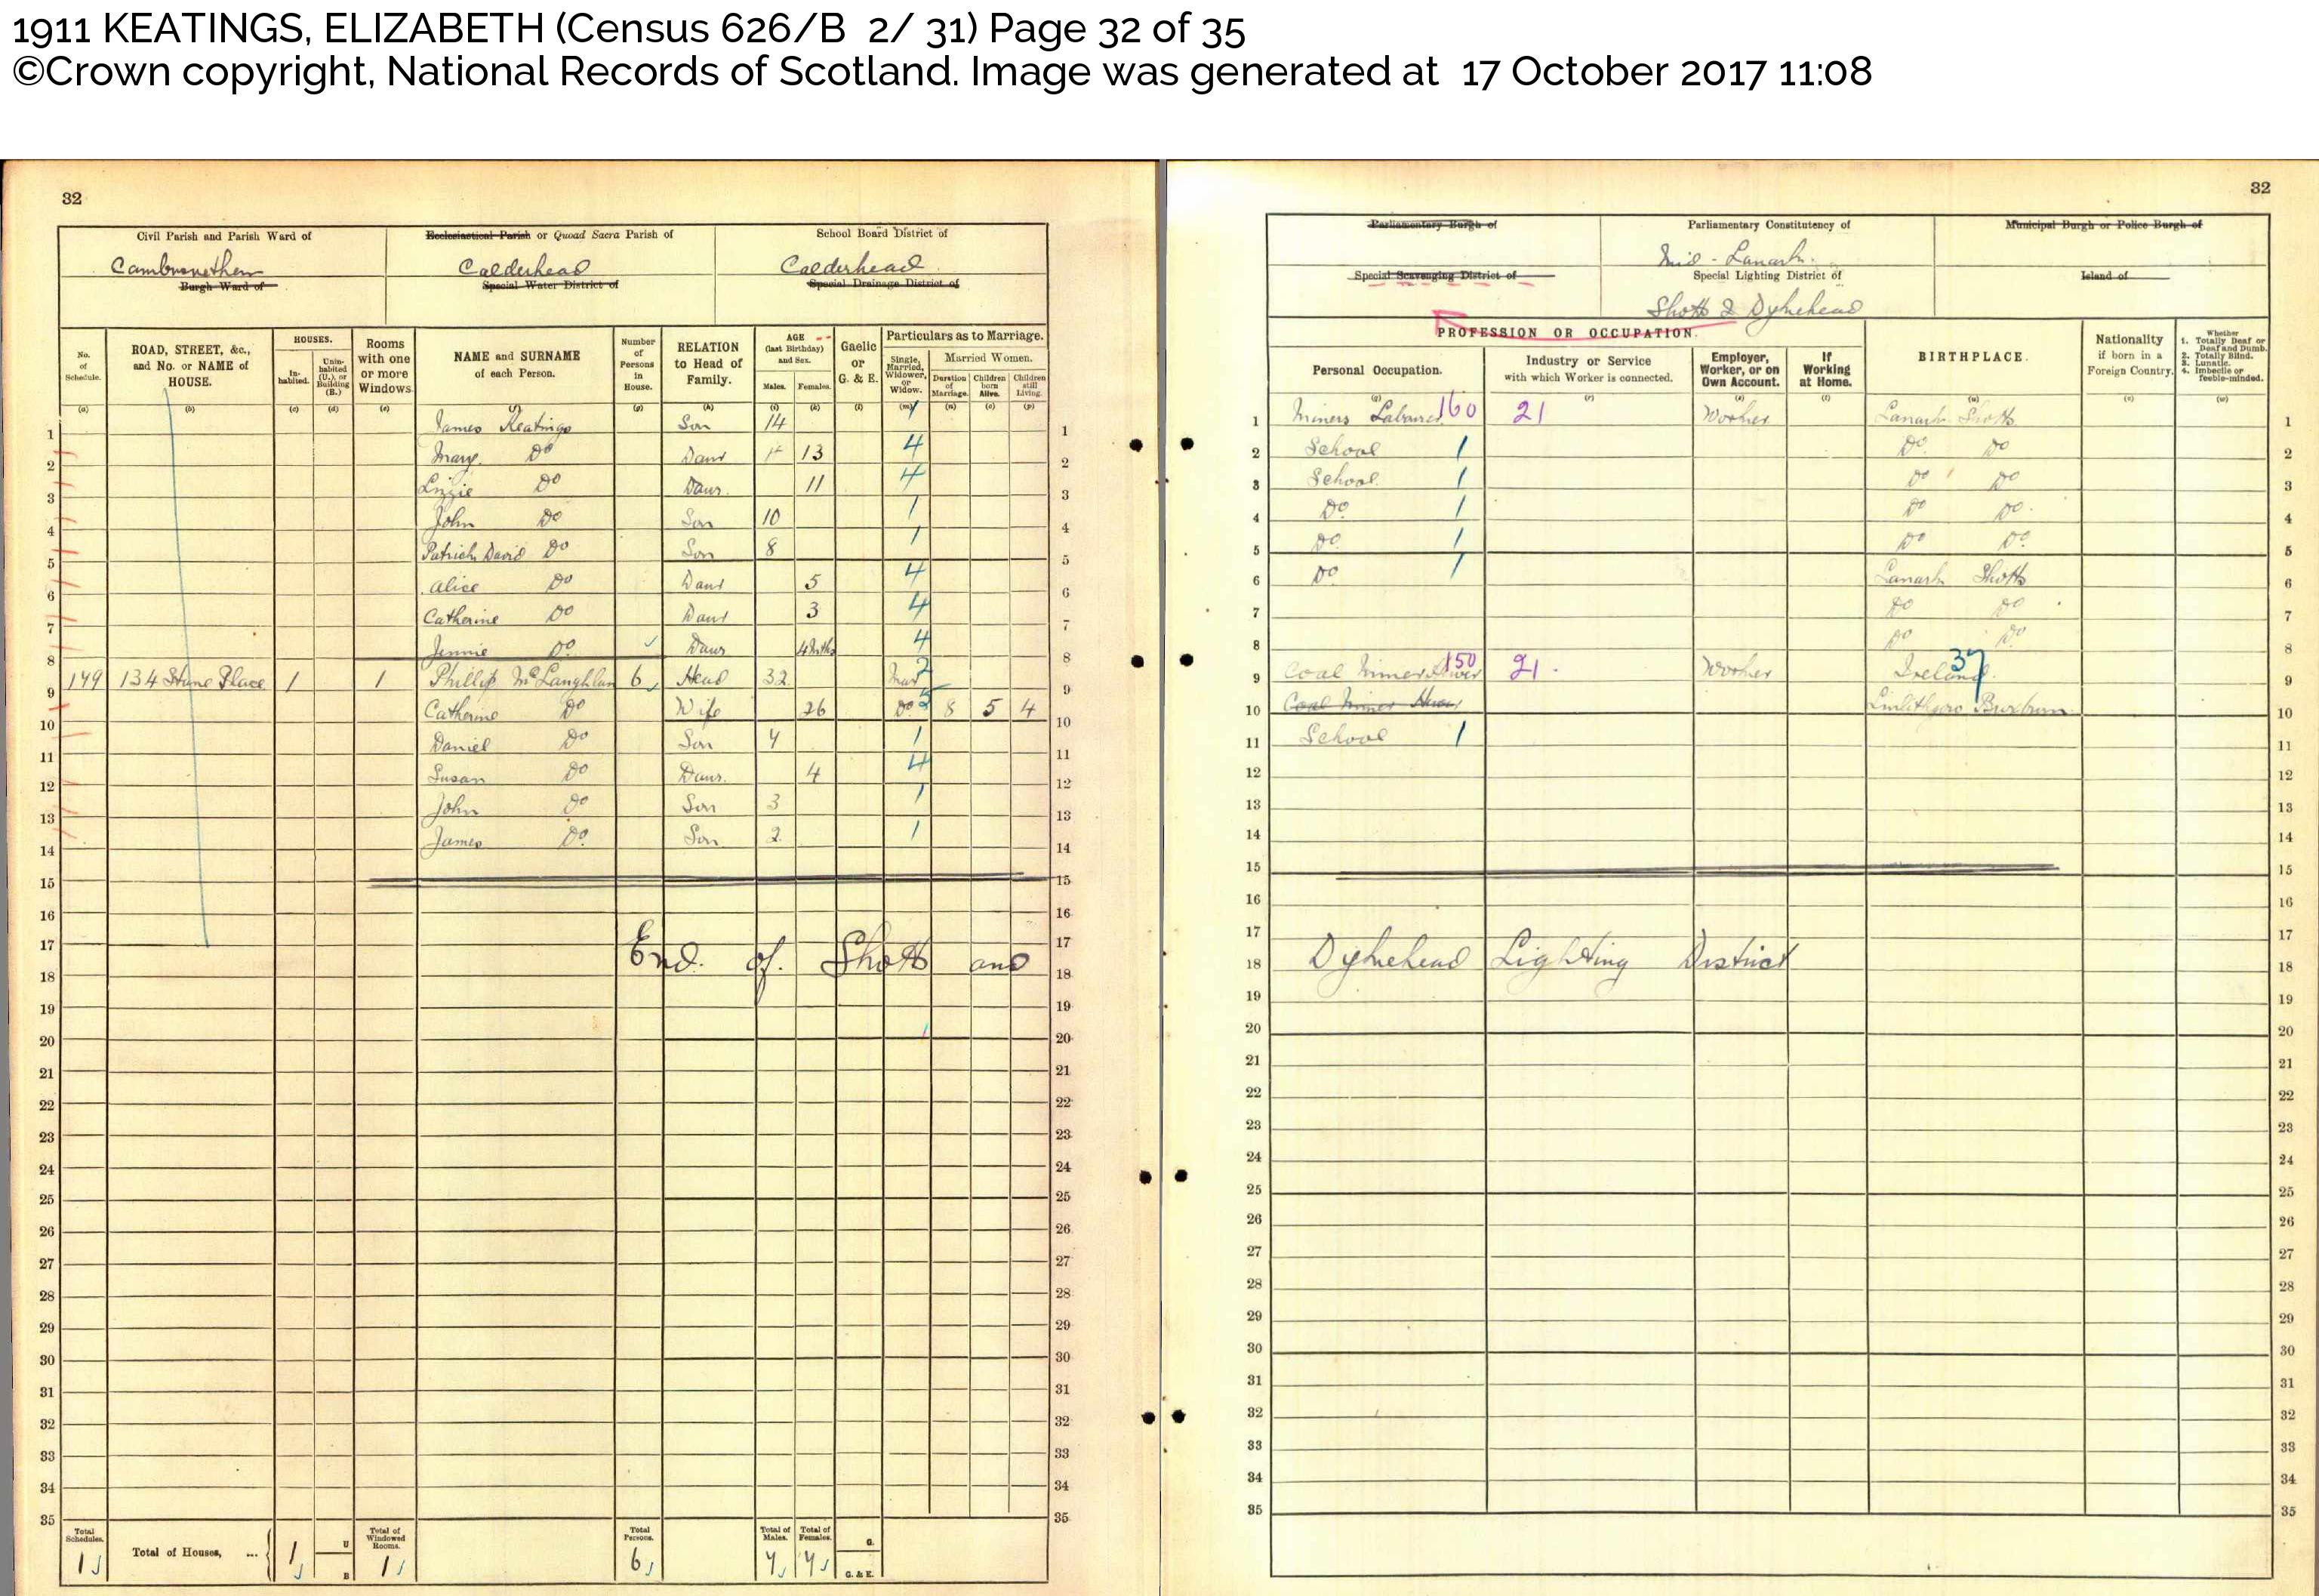 1911 KEATINGS, ELIZABETH (Census 626/B 2/ 31) Page 32 of 35
©Crown copyright, National Records of Scotland. Image was generated at 17 October 2017 11:08
32
Civil Parish and Parish Ward of
Cambusnethan
Burgh Ward of
Ecclesiastical Parish or Quoad Sacra Parish of
Calderhead
Special Water District of
School Board District of
Calderhead
Special Drainage District of
No. of Schedule.
ROAD, STREET, &c., and No. or NAME of HOUSE.
HOUSES.
Inhabited.
Uninhabited (U.), or Building (B.)
Rooms with one or more Windows
NAME and SURNAME of each Person.
Number of Persons in House.
RELATION to Head of Family.
AGE (last Birthday) and Sex.
Males. Females.
Gaelic or G. & E.
Particulars as to Marriage.
Single, Married, Widower, or Widow.
Married Women.
Duration of Marriage. Children born Alive. Children still Living.
(a) (b) (c) (d) (e) (f) (g) (h) (i) (k) (l) (m) (n) (o) (p)
1 James Keatings Son 14 1 1
2 Mary Do Daur 13 4 2
3 Lizzie Do Daur. 11 4 3
4 John Do Son 10 1 4
5 Patrick David Do Son 8 1 5
6 Alice Do Daur 5 4 6
7 Catherine Do Daur 3 4 7
8 Jennie Do. Daur 4 Mths 4 8
9 149 134 Stane Place 1 1 Phillip McLaughlan 6 Head 32 Mar 2 9
10 Catherine Do Wife 26 Do 5 8 5 4 10
11 Daniel Do Son 7 1 11
12 Susan Do Daur. 4 4 12
13 John Do Son 3 1 13
14 James Do. Son 2 1 14
15 15
16 16
17 17
18 End of Shotts and 18
19 19
20 20
21 21
22 22
23 23
24 24
25 25
26 26
27 27
28 28
29 29
30 30
31 31
32 32
33 33
34 34
35 35
Total Schedules. 1
Total of Houses, ... 1 U B
Total of Windowed Rooms. 1
Total Persons. 6
Total of Males. 7
Total of Females. 7
G.
G. & E.
32
Parliamentary Burgh of
Parliamentary Constitutency of
Mid-Lanark.
Municipal Burgh or Police Burgh of
Special Scavenging District of
Special Lighting District of
Shotts & Dykehead
Island of
PROFESSION OR OCCUPATION.
Personal Occupation.
Industry or Service with which Worker is connected.
Employer, Worker, or on Own Account.
If Working at Home.
BIRTHPLACE.
Nationality if born in a Foreign Country.
Whether
1. Totally Deaf or Deaf and Dumb.
2. Totally Blind.
3. Lunatic.
4. Imbecile or feeble-minded.
(q) (r) (s) (t) (u) (v) (w)
1 Miners Labourer 160 21 Worker Lanark Shotts 1
2 School 1 Do. Do 2
3 School. 1 Do Do 3
4 Do. 1 Do Do. 4
5 Do. 1 Do Do. 5
6 Do 1 Lanark Shotts 6
7 Do Do 7
8 Do Do. 8
9 Coal Miner Hewer 150 21 Worker Ireland. 37 9
10 Coal Miner Hewer Linlithgow Broxburn 10
11 School 1 11
12 12
13 13
14 14
15 15
16 16
17 17
18 Dykehead Lighting District 18
19 19
20 20
21 21
22 22
23 23
24 24
25 25
26 26
27 27
28 28
29 29
30 30
31 31
32 32
33 33
34 34
35 35